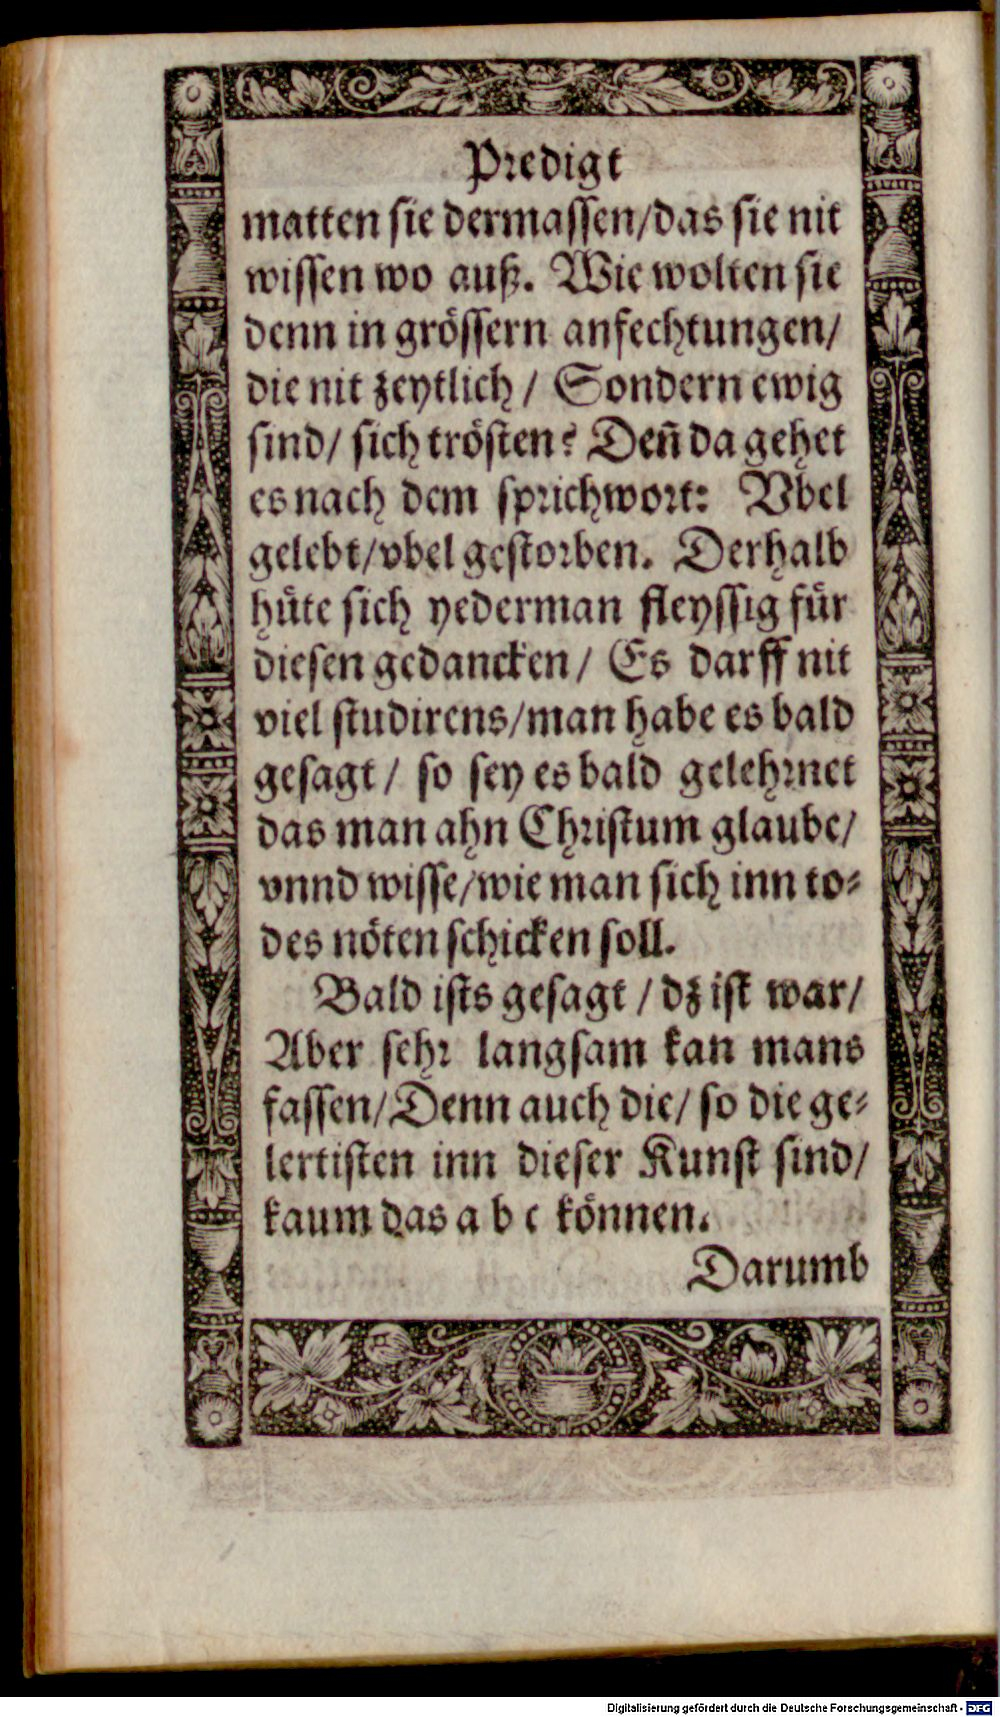 Predigt
matten sie dermassen/das sie nit
wissen wo auß. Wie wolten sie
denn in grössern anfechtungen/
die nit zeytlich/ Sondern ewig
sind/ sich trösten? Deñ da gehet
es nach dem sprichwort: Vbel
gelebt/vbel gestorben. Derhalb
hüte sich yederman fleyssig für
diesen gedancken/ Es darff nit
viel studirens/man habe es bald
gesagt/ so sey es bald gelehrnet
das man ahn Christum glaube/
vnnd wisse/wie man sich inn to-
des nöten schicken soll.
Bald ists gesagt/dz ist war/
Aber sehr langsam kan mans
fassen/Denn auch die/ so die ge-
lertisten inn dieser Kunst sind/
kaum das a b c können.
Darumb
Digitalisierung gefördert durch die Deutsche Forschungsgemeinschaft - DFG